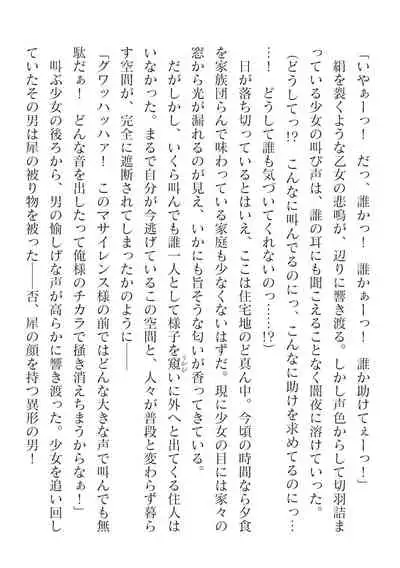 「いやぁーっ!　だっ、誰かっ!　誰かぁーっ!　誰か助けてぇーっ!」
　絹を裂くような乙女の悲鳴が、辺りに響き渡る。しかし声色からして切羽詰ま
っている少女の叫び声は、誰の耳にも聞こえることなく闇夜に溶けていった。
（どうしてっ!?　こんなに叫んでるのにっ、こんなに助けを求めてるのにっ…
…!　どうして誰も気づいてくれないのっ……!?）
　日が落ち切っているとはいえ、ここは住宅地のど真ん中。今頃の時間なら夕食
を家族団らんで味わっている家庭も少なくないはずだ。現に少女の目には家々の
窓から光が漏れるのが見え、いかにも旨そうな匂いが香ってきている。
　だがしかし、いくら叫んでも誰一人として様子を窺（うかが）いに外へと出てくる住人は
いなかった。まるで自分が今逃げているこの空間と、人々が普段と変わらず暮ら
す空間が、完全に遮断されてしまったかのように――
「グワッハッハァ!　このマサイレンス様の前ではどんな大きな声で叫んでも無
駄だぁ!　どんな音を出したって俺様のチカラで掻き消えちまうからなぁ!」
　叫ぶ少女の後ろから、男の愉しげな声が高らかに響き渡った。少女を追い回し
ていたその男は犀の被り物を被った――否、犀の顔を持つ異形の男!